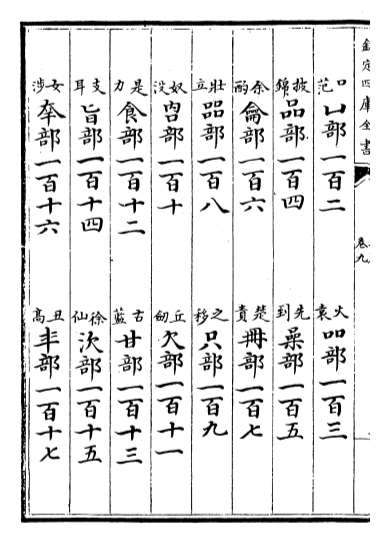 欽定四庫全書
卷九
口范凵部一百二
火袁吅部一百三
披錦品部一百四
先到喿部一百五
余酌龠部一百六
楚責冊部一百七
壯立㗊部一百八
之移只部一百九
奴沒㕯部一百十
丘劒欠部一百十一
是力食部一百十二
古藍甘部一百十三
支耳旨部一百十四
徐仙㳄部一百十五
女涉㚔部一百十六
丑高夲部一百十七